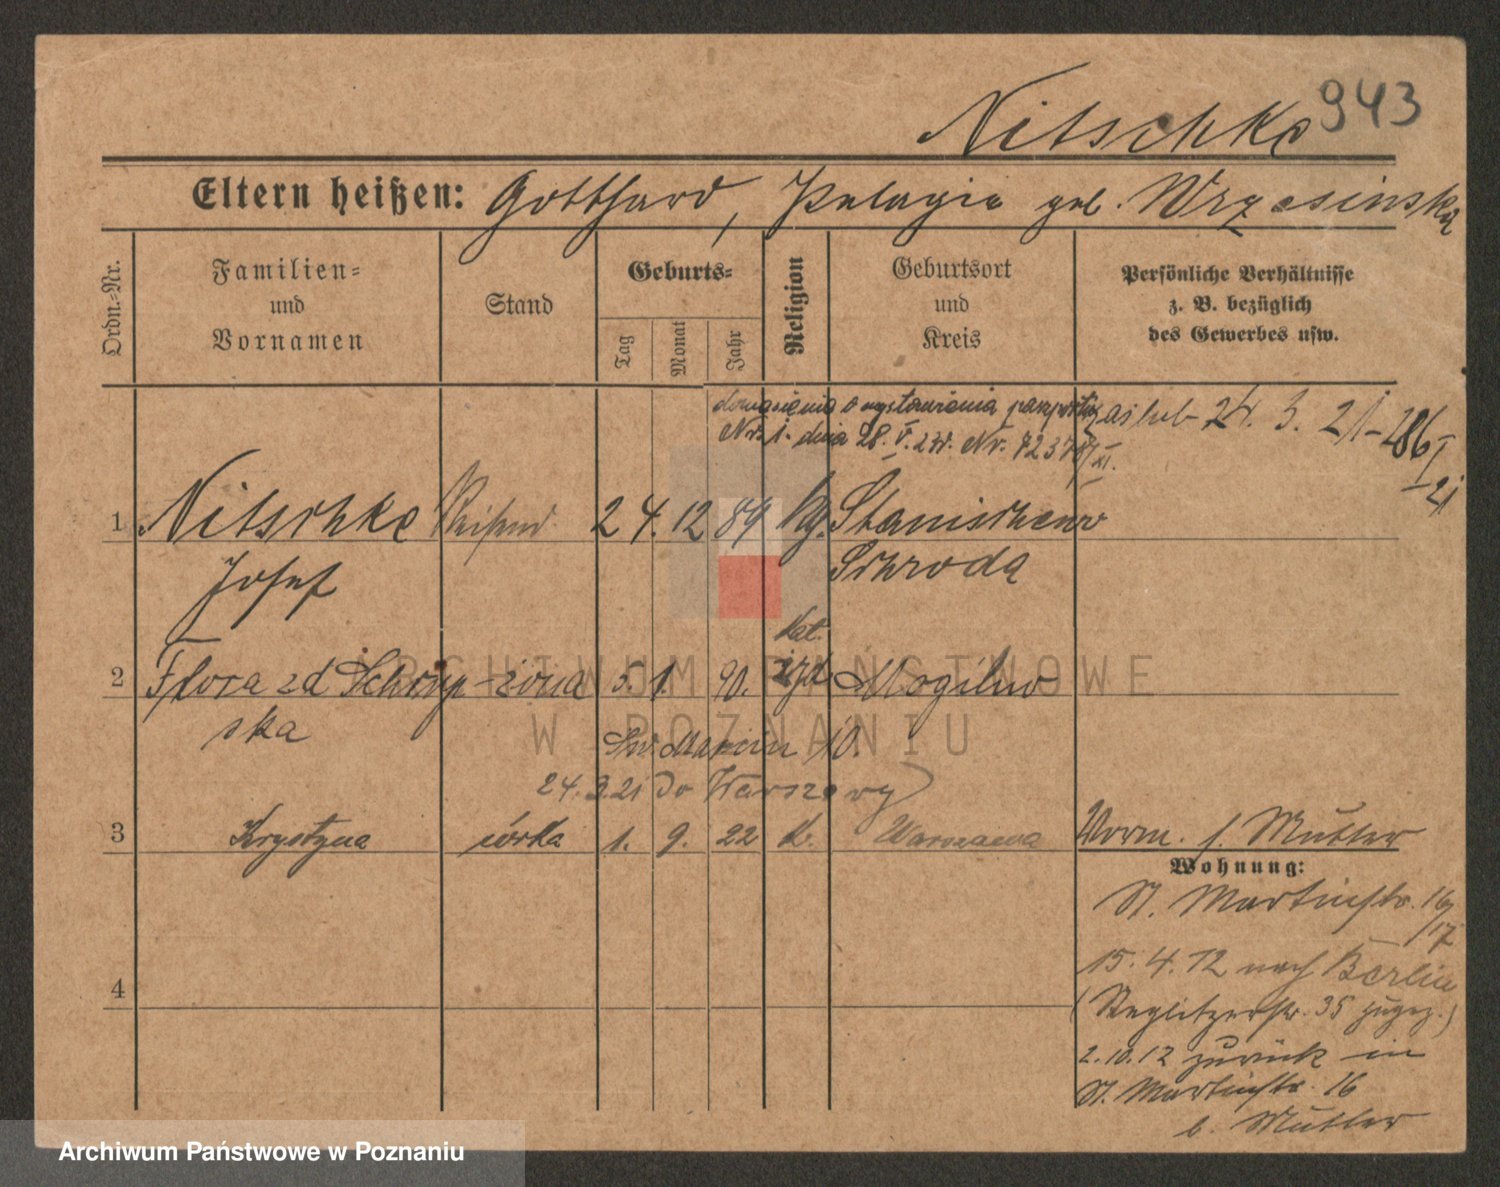 Nitschke 943
Eltern heißen: Gotthard, Pelagia geb. Wrzesinska
Ordn.-Nr.
Familien-
und
Vornamen
Stand
Geburts-
Tag
Monat
Jahr
Religion
Geburtsort
und
Kreis
Persönliche Verhältnisse
z. B. bezüglich
des Gewerbes usw.
doniesienia o wystawienia paszportu
24. 3. 21 - 286
dnia 28. V. Nr.
1 Nitschke 24. 12 89 kg. Stanischewo
Josef Schroda
kat.
2 Flora zd Schryp- żona 5. 1. 90. izd Mogilno
ska
Sw. Marcin 10.
24.3.21 do Warszawy
3 Krystyna córka 1. 9. 22 k. Warszawa Vorm. s. Mutter
Wohnung:
St. Martinstr. 16/17
15. 4. 12 nach Berlin
(Steglitzerstr. 35 zugez.)
2.10.12 zurück in
St. Martinstr. 16
b. Mutter
4
ARCHIWUM PAŃSTWOWE
W POZNANIU
Archiwum Państwowe w Poznaniu